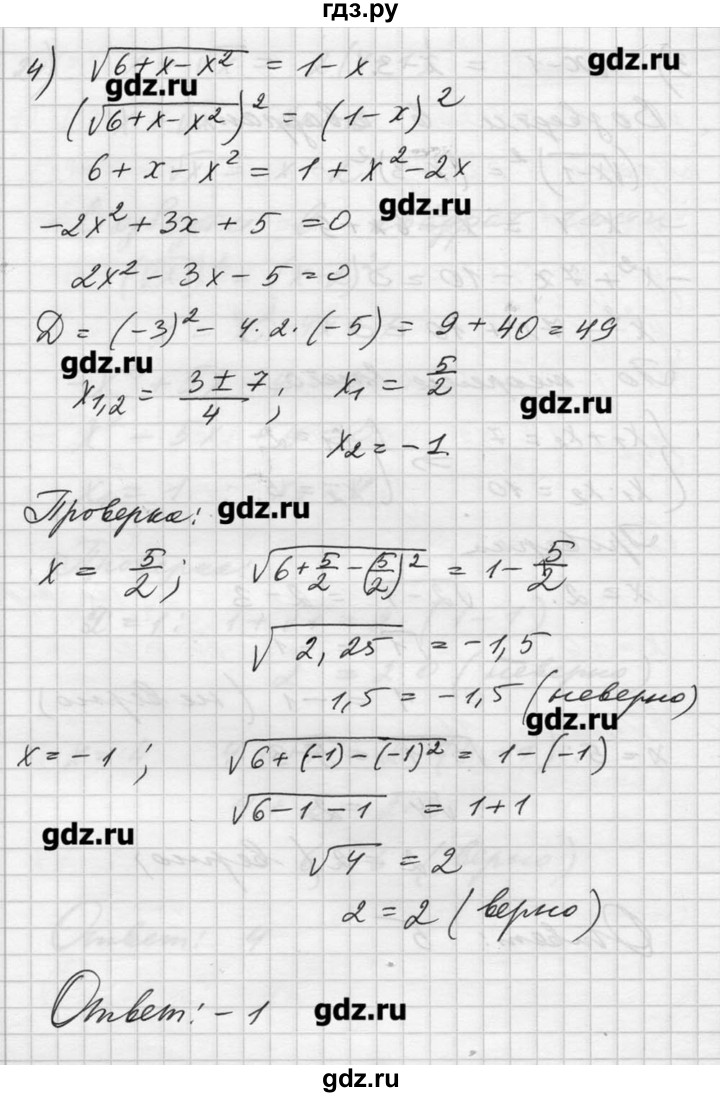 гдз.ру
4) √(6+x-x²) = 1-x
gdz.ru
gdz.ru
(√(6+x-x²))² = (1-x)²
6+x-x² = 1+x²-2x
gdz.ru
-2x²+3x+5 =0
2x²-3x-5=0
Д = (-3)² - 4·2·(-5) = 9+40=49
gdz.ru
x₁,₂ = (3±7)/4 ; x₁ = 5/2
gdz.ru
x₂ = -1.
Проверка:
gdz.ru
x = 5/2 ; √(6+5/2-(5/2)²) = 1-5/2
√(2,25) = -1,5
1,5 = -1,5 (неверно)
gdz.ru
x=-1 ; √(6+(-1)-(-1)²) = 1-(-1)
√(6-1-1) = 1+1
gdz.ru
√4 = 2
2=2 (верно)
Ответ: -1
gdz.ru
gdz.ru